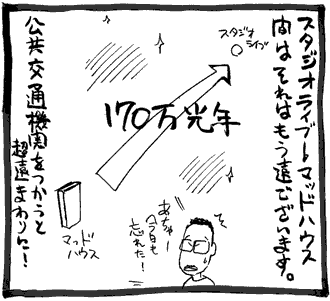 スタジオライブ〜マッドハウス
間はそれはもう遠でございます。
スタジオ
ライブ
170万光年
マッド
ハウス
あちゃー
今日も
忘れた!
公共交通機関をつかうと
超遠まわりに!